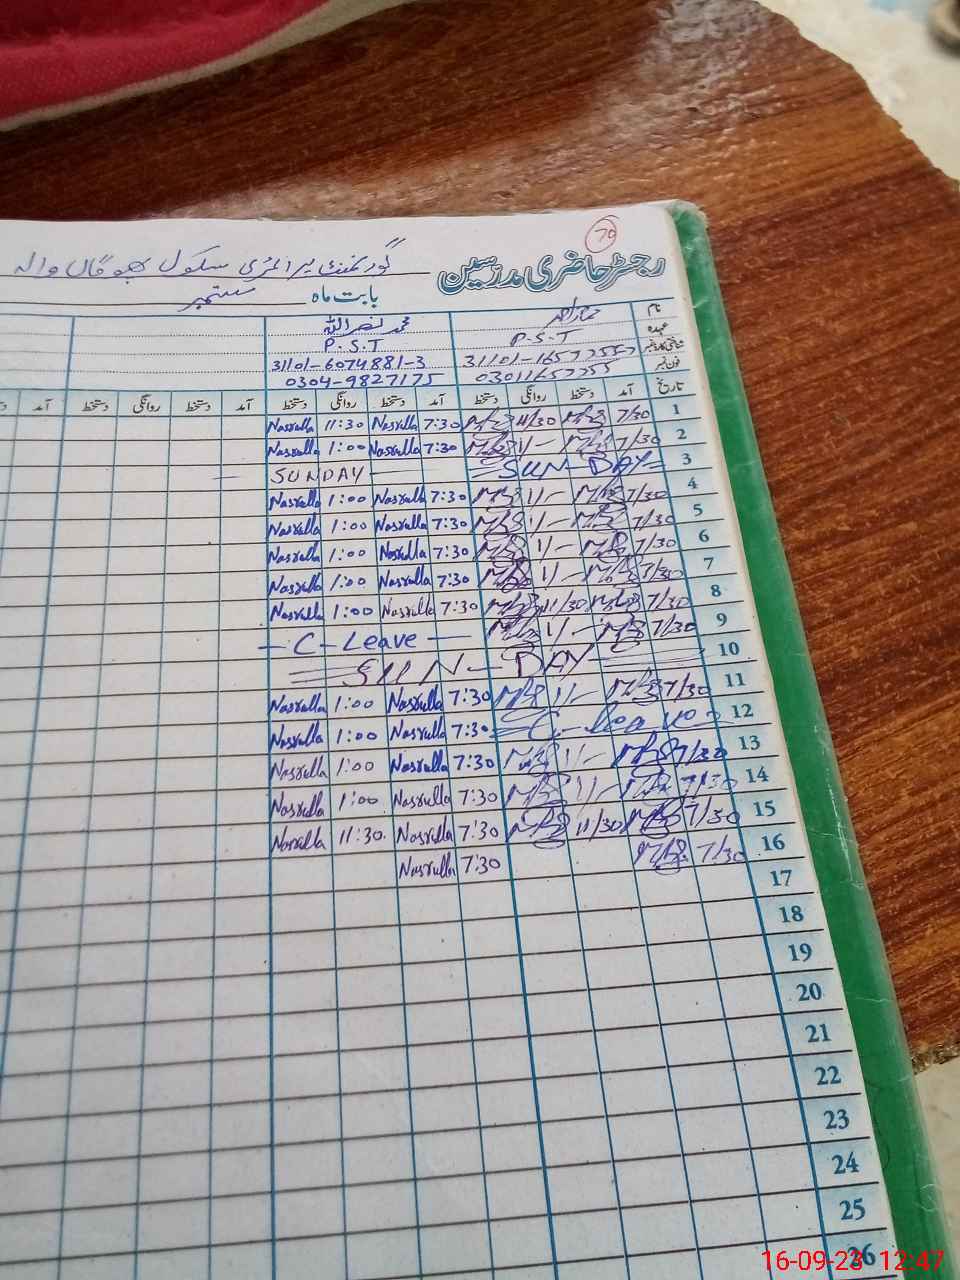 70
رجسٹر حاضری مدرسین گورنمنٹ پرائمری سکول
بابت ماہ ستمبر
نام محمد نصر اللہ
عہدہ P.S.T P.S.T
شناختی کارڈ نمبر 31101-6074881-3
فون نمبر 03011657755 0304-9827175
تاریخ آمد دستخط روانگی دستخط آمد دستخط روانگی دستخط آمد دستخط روانگی دستخط آمد
1 7/30 11/30 7:30 Nasrulla 11:30 Nasrulla
2 7/30 1/- 7:30 Nasrulla 1:00 Nasrulla
3 SUN DAY SUNDAY
4 7/30 1/- 7:30 Nasrulla 1:00 Nasrulla
5 7/30 1/- 7:30 Nasrulla 1:00 Nasrulla
6 7/30 1/- 7:30 Nasrulla 1:00 Nasrulla
7 7/30 1/- 7:30 Nasrulla 1:00 Nasrulla
8 7/30 11/30 7:30 Nasrulla 1:00 Nasrulla
9 7/30 1/- C-Leave
10 SUN DAY
11 7/30 1/- 7:30 Nasrulla 1:00 Nasrulla
12 C-leave 7:30 Nasrulla 1:00 Nasrulla
13 7/30 1/- 7:30 Nasrulla 1:00 Nasrulla
14 7/30 1/- 7:30 Nasrulla 1:00 Nasrulla
15 7/30 11/30 7:30 Nasrulla 11:30 Nasrulla
16 7/30 7:30 Nasrulla
17
18
19
20
21
22
23
24
25
26
16-09-23 12:47